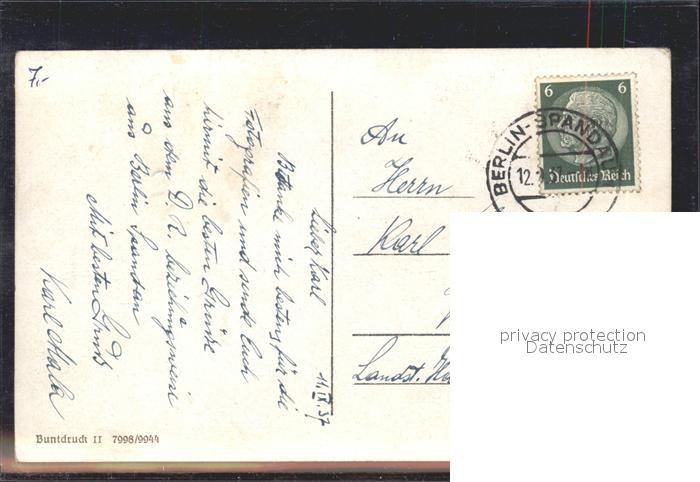 7,-
11.IX.37
Lieber Karl
Bedanke mich bestens für die
Fotografien und sende Euch
hiermit die besten Grüsse
aus dem D. R. beziehungsweise
aus Berlin Spandau
Mit besten Gruß
Karl
An
Herrn
Karl
Landst.
6 6
Deutsches Reich
BERLIN-SPANDAU
12.
Buntdruck II 7998/9944
privacy protection
Datenschutz